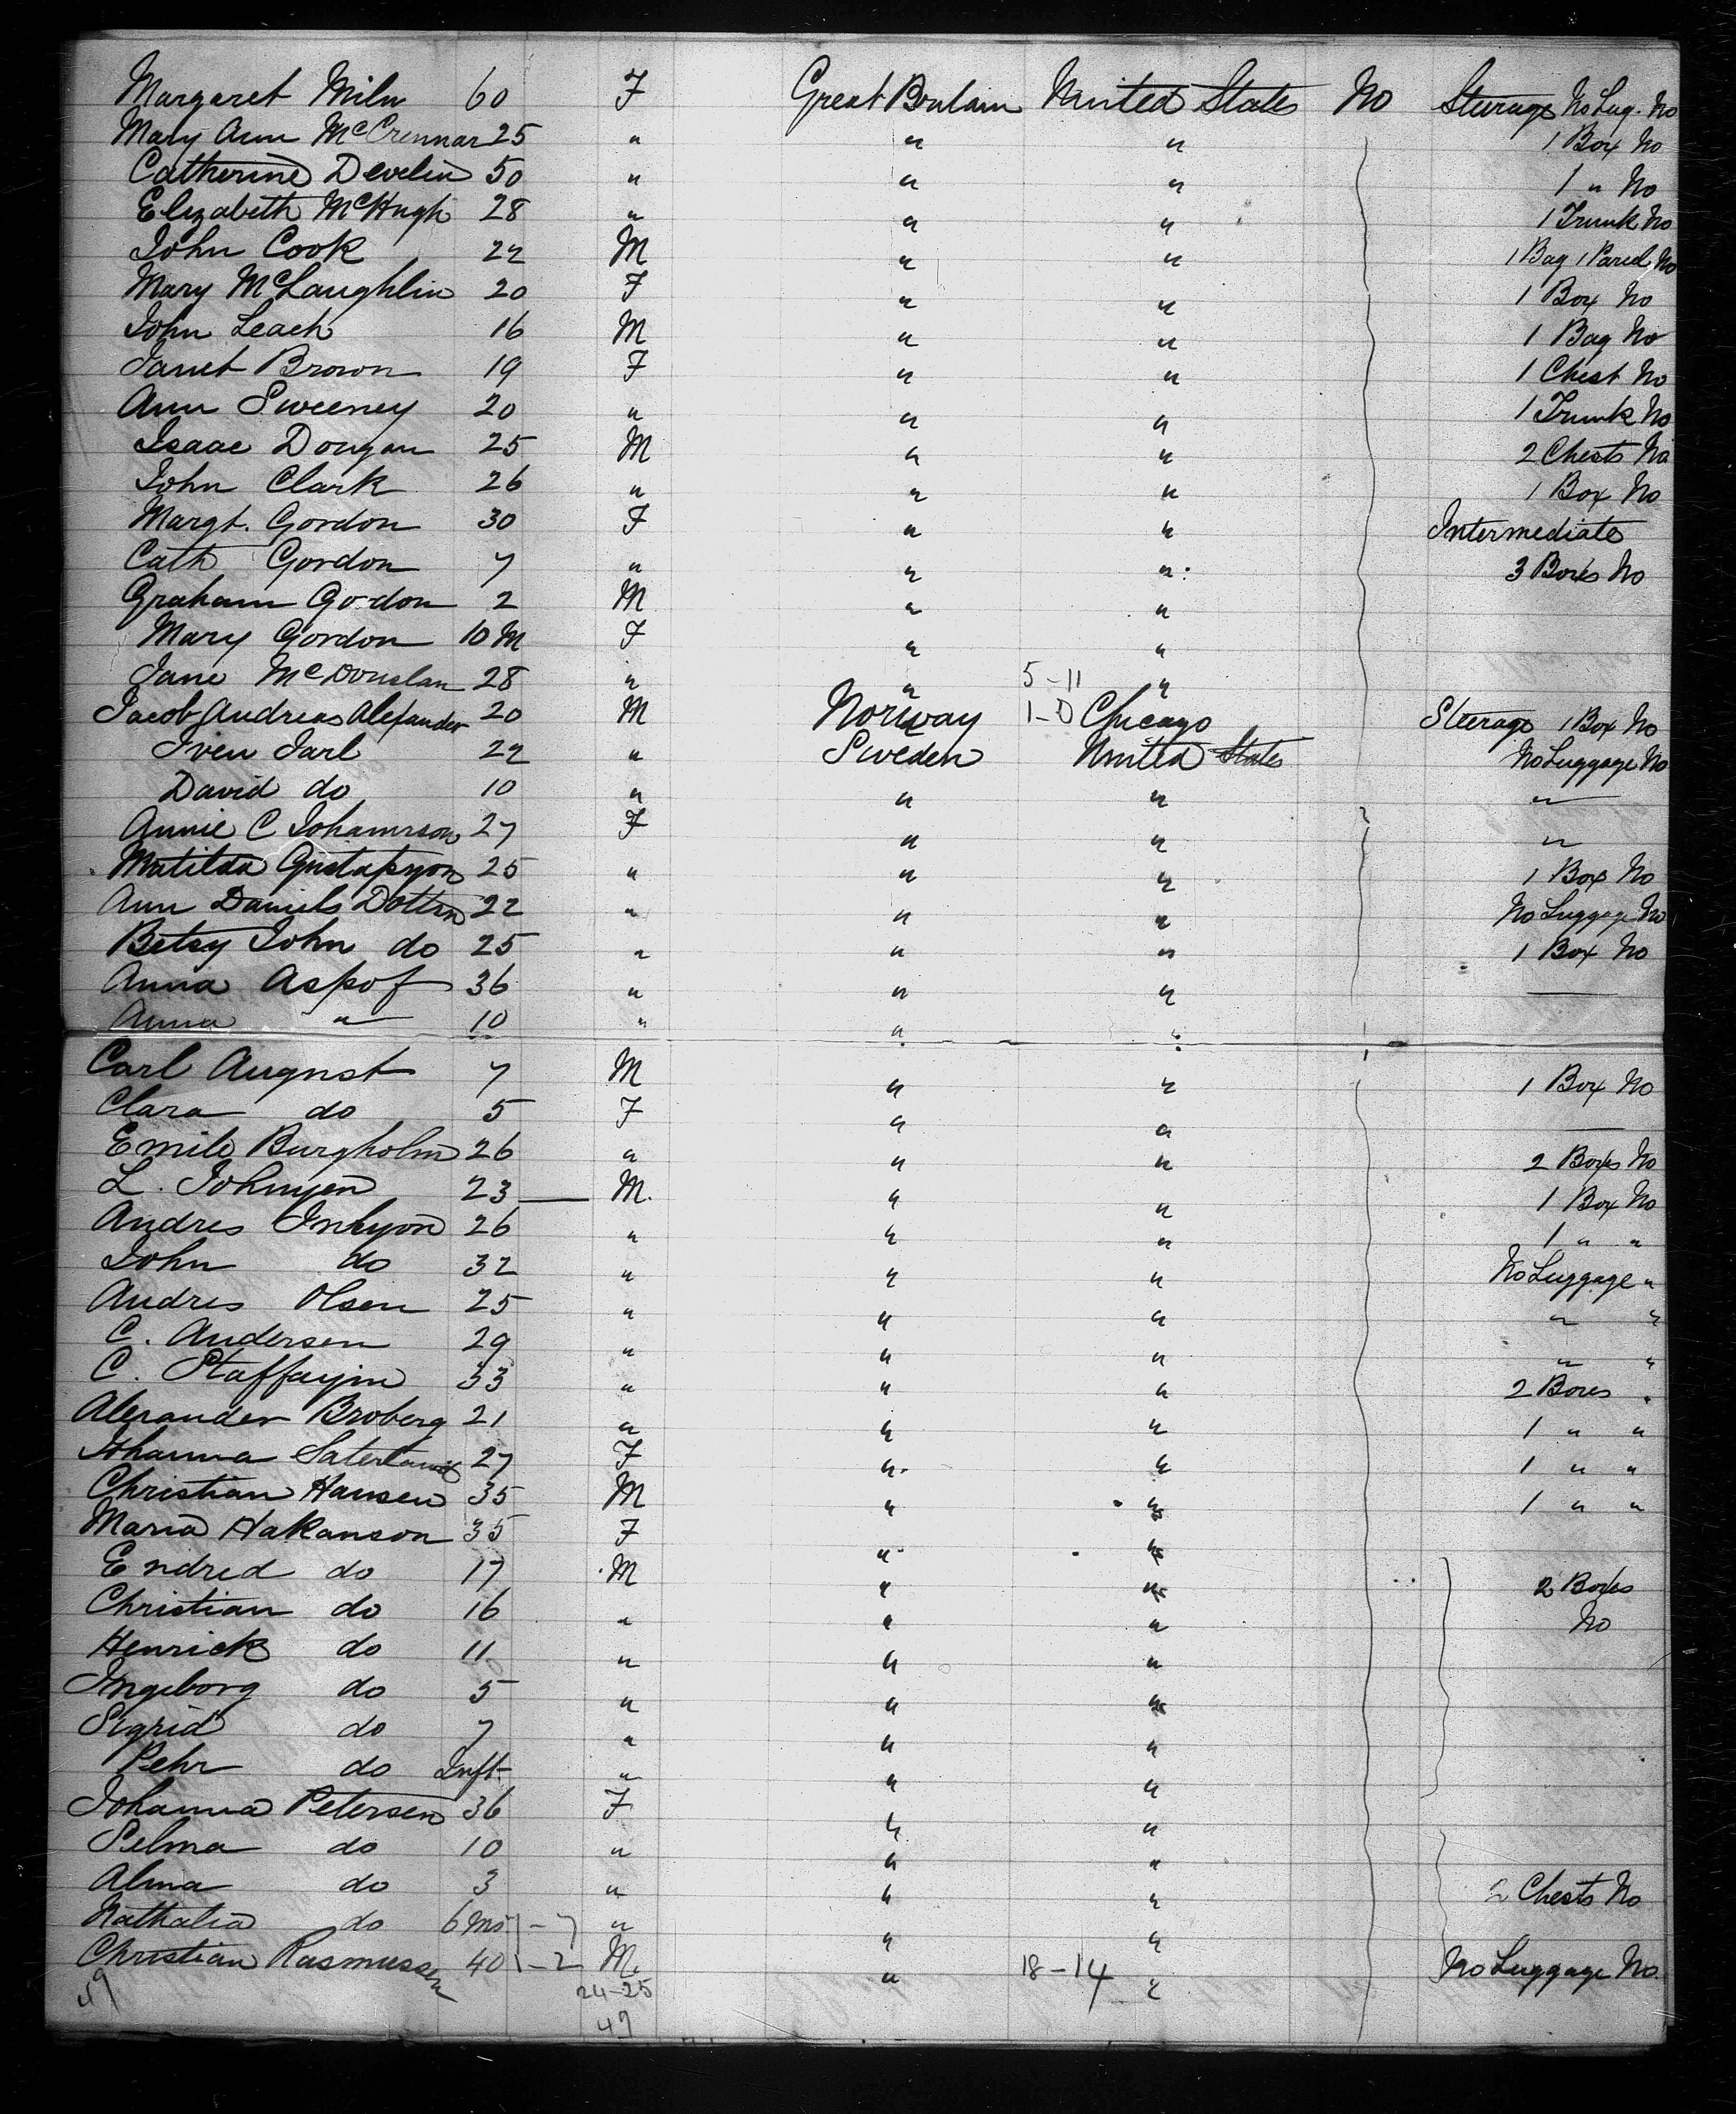 Margaret Miln 60 F Great Britain United States No Steerage No Lug. No
Mary Ann McCrennar 25 " " " 1 Box No
Catherine Develin 50 " " " 1 " No
Elizabeth McHugh 28 " " " 1 Trunk No
John Cook 22 M " " 1 Bag 1 Parcel No
Mary McLaughlin 20 F " " 1 Box No
John Leach 16 M " " 1 Bag No
Janet Brown 19 F " " 1 Chest No
Ann Sweeney 20 " " " 1 Trunk No
Isaac Dougan 25 M " " 2 Chests No
John Clark 26 " " " 1 Box No
Margt. Gordon 30 F " " Intermediate
Cath Gordon 7 " " " 3 Boxes No
Graham Gordon 2 M " "
Mary Gordon 10 M F " "
Jane 28 " " 5-11 "
Jacob Andreas Alexander 20 M Norway 1-0 Chicago Steerage 1 Box No
Iven Jarl 22 " Sweden United States No Luggage No
David do 10 " " " "
Annie C Johannson 27 F " " "
Matilda Gustafson 25 " " " 1 Box No
Ann Daniels Dotten 22 " " " No Luggage No
Betsy John do 25 " " " 1 Box No
Anna Aspof 36 " " "
Anna " 10 " " "
Carl August 7 M " " 1 Box No
Clara do 5 F " "
Emile Burgholm 26 " " " 2 Boxes No
L. Johnyen 23 M. " " 1 Box No
Andres 26 " " " 1 " "
John do 32 " " " No Luggage "
Andres Olsen 25 " " " " "
C. Andersen 29 " " " " "
C. 33 " " " 2 Boxes "
Alexander Broberg 21 " " " 1 " "
Johanna 27 F " " 1 " "
Christian Hansen 35 M " " 1 " "
Maria Hakanson 35 F " "
Endred do 17 M " " 2 Boxes
Christian do 16 " " " No
Henrick do 11 " " "
Ingeborg do 5 " " "
Sigrid do 7 " " "
Pehr do Inft. " " "
Johanna Petersen 36 F " "
Selma do 10 " " "
Alma do 3 " " " 2 Chests No
Nathalia do 6 Ms. -7 " " "
Christian Rasmussen 40 -2 M. " 18-14 " No Luggage No.
49 24-25
49